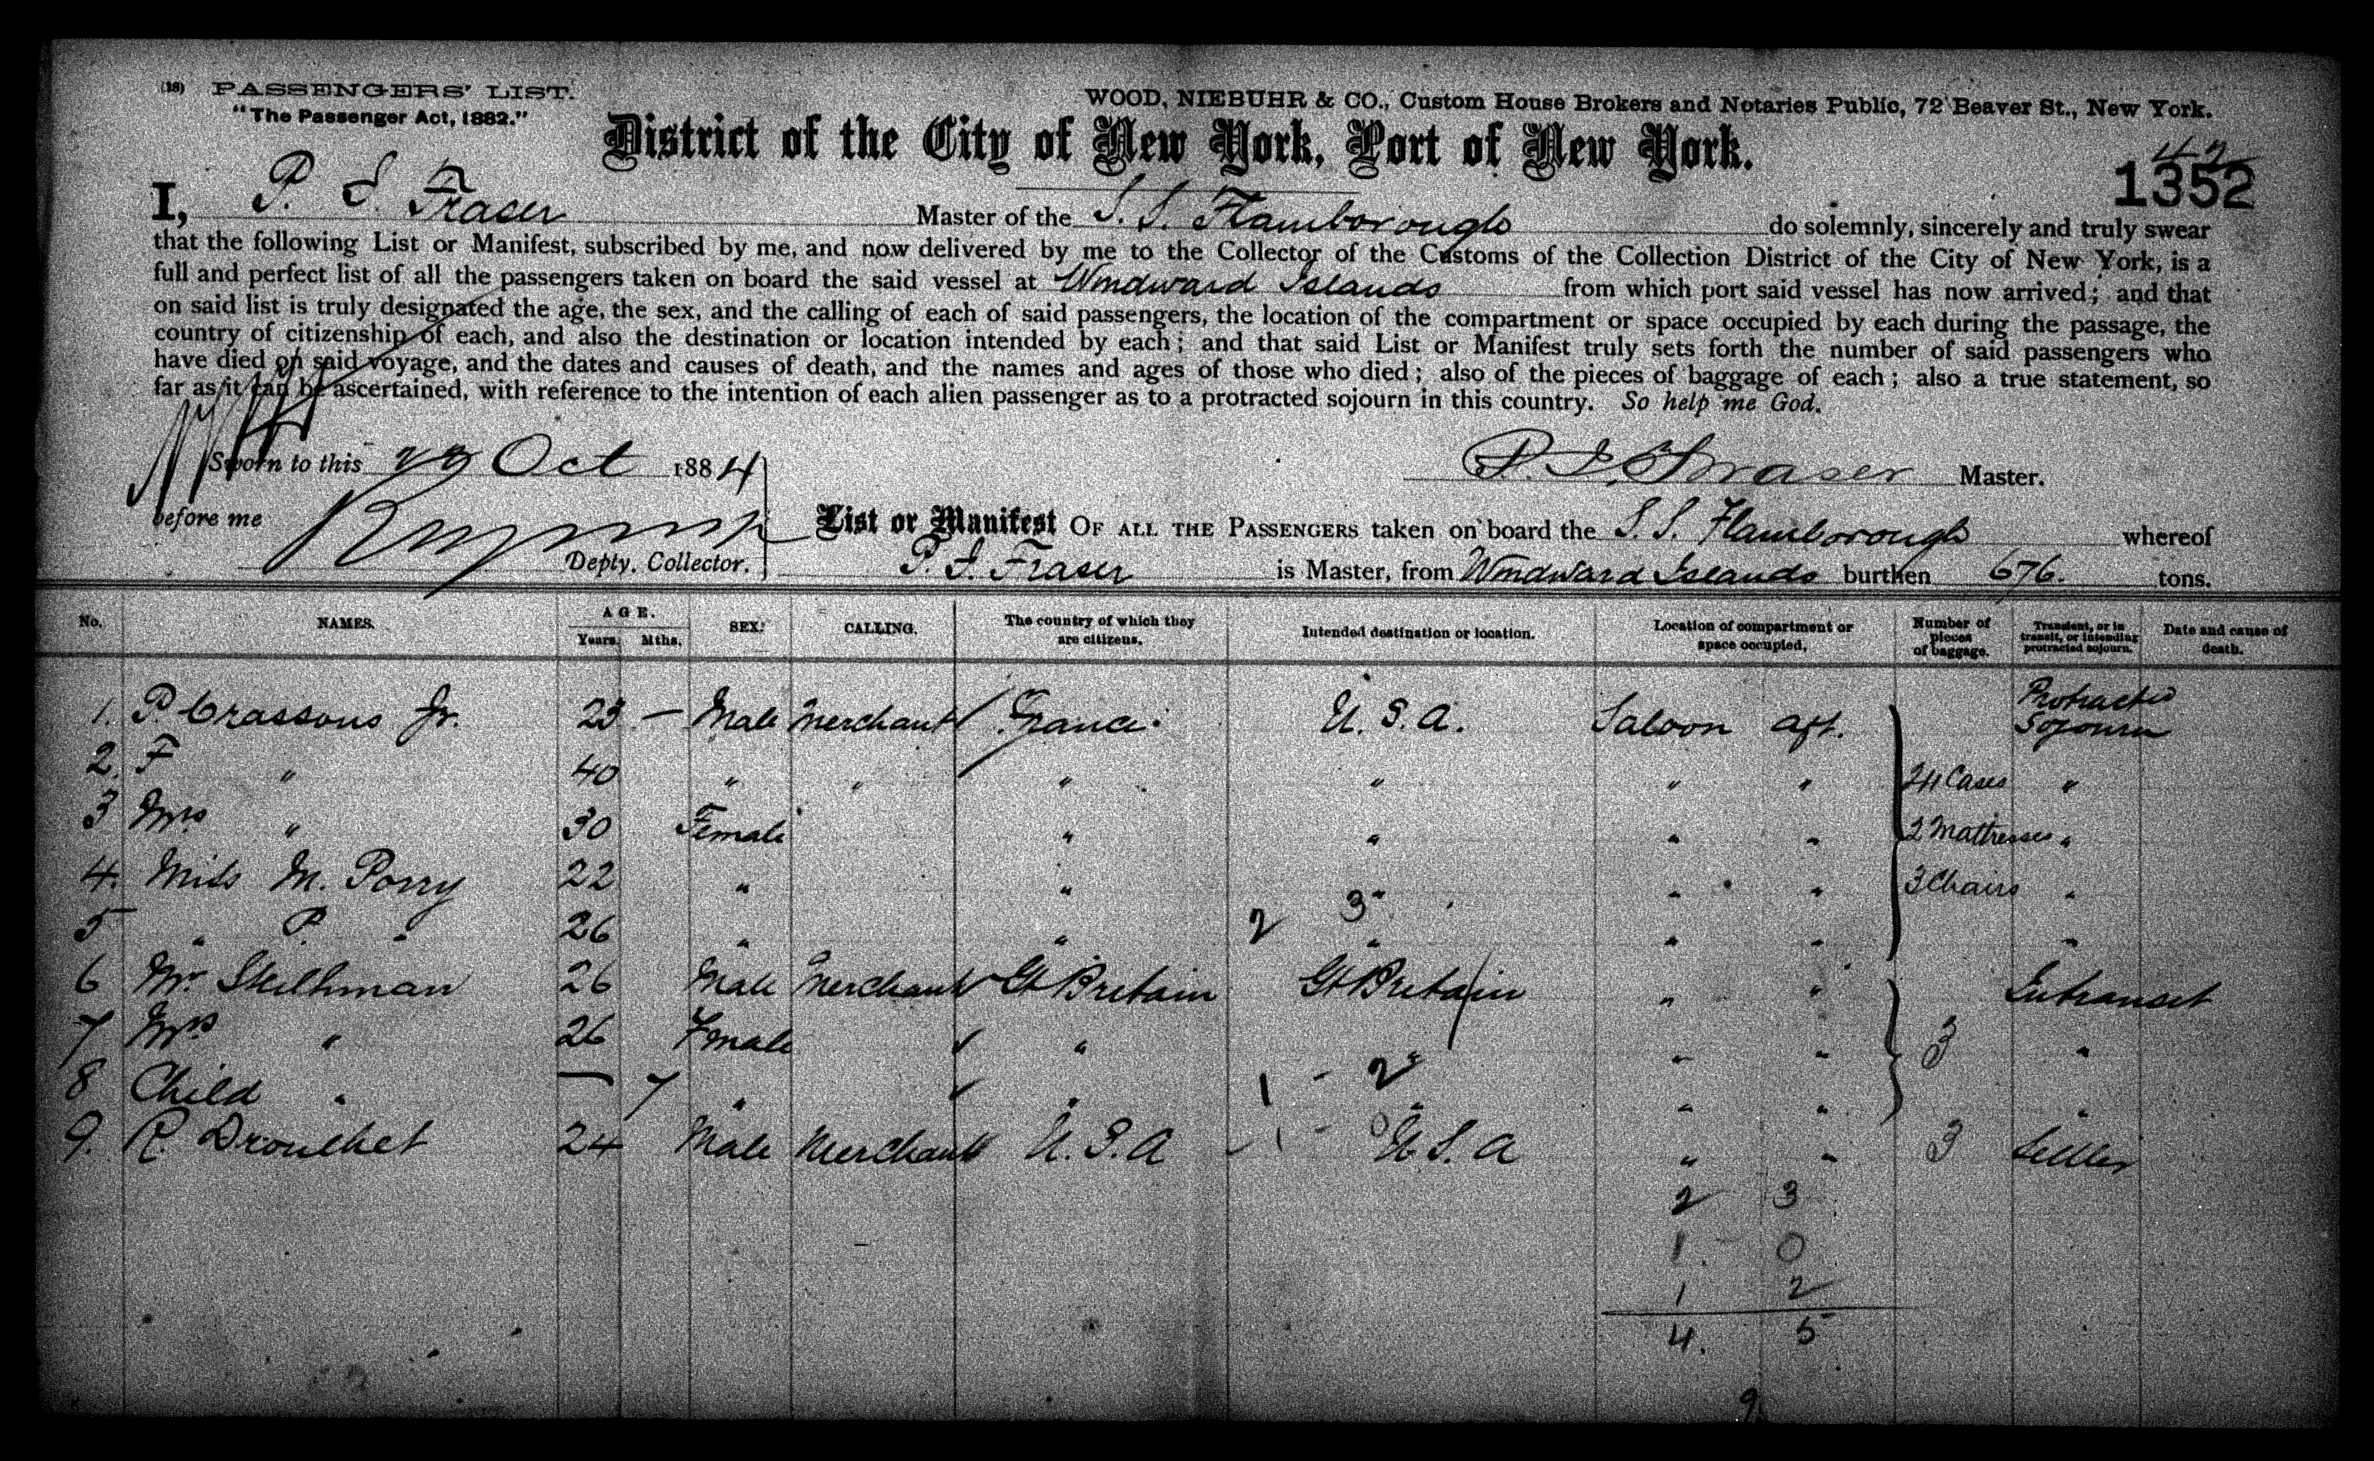 (18) PASSENGERS' LIST.
"The Passenger Act, 1882."
WOOD, NIEBUHR & CO., Custom House Brokers and Notaries Public, 72 Beaver St., New York.
District of the City of New York, Port of New York.
1352
I, P. S. Fraser Master of the S. S. Flamborough do solemnly, sincerely and truly swear
that the following List or Manifest, subscribed by me, and now delivered by me to the Collector of the Customs of the Collection District of the City of New York, is a
full and perfect list of all the passengers taken on board the said vessel at Windward Islands from which port said vessel has now arrived; and that
on said list is truly designated the age, the sex, and the calling of each of said passengers, the location of the compartment or space occupied by each during the passage, the
country of citizenship of each, and also the destination or location intended by each; and that said List or Manifest truly sets forth the number of said passengers who
have died on said voyage, and the dates and causes of death, and the names and ages of those who died; also of the pieces of baggage of each; also a true statement, so
far as it can be ascertained, with reference to the intention of each alien passenger as to a protracted sojourn in this country. So help me God.
Sworn to this Oct 1884
P. S. Fraser Master.
before me
Depty. Collector.
List or Manifest OF ALL THE PASSENGERS taken on board the S. S. Flamborough whereof
P. S. Fraser is Master, from Windward Islands burthen 676. tons.
No. NAMES. AGE. Years. Mths. SEX. CALLING. The country of which they are citizens. Intended destination or location. Location of compartment or space occupied. Number of pieces of baggage. Transient, or in transit, or intending protracted sojourn. Date and cause of death.
1. P. Crassous Jr. 23 — Male Merchant France. U. S. A. Saloon aft. Protracted Sojourn
2. F " 40 " " " " " " 24 Cases "
3 Mrs " 30 Female " " " " 2 Mattresses "
4. Miss M. Porry 22 " " " " " 3 Chairs "
2 3
5 " P. " 26 " " " " " "
6 Mr Skelhman 26 Male Merchant Gt Britain Gt Britain " " Intransit
7 Mrs " 26 Female " " " 3 "
1 - 2
8 Child " — 7 " " " " " "
9. R. Drouelhet 24 Male Merchant U. S. A U. S. A " " 3 Settler
2 3
1 0
1 2
4. 5
9.